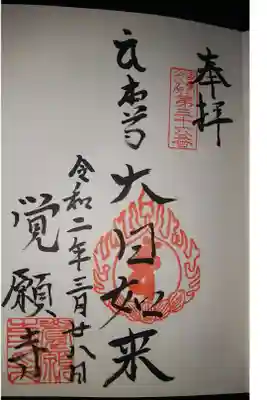 奉拝
第三十六番
御本尊 大日如来
令和二年三月廿八日
覚願寺